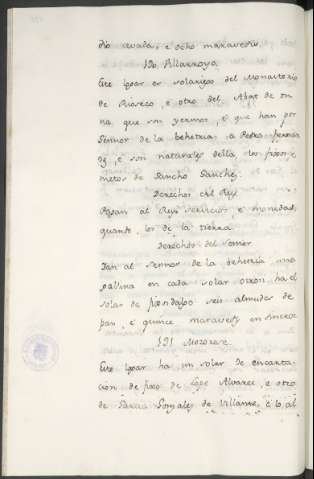 dio cevada, e ocho maravedis.
120. Villarroya
Este logar es solariego del Monasterio
de Rioseco, e otro del Abat de On
na, que son yermos, e que han por
Sennor de la behetria a Pedro Ferrand
ez, e son naturales della los fijos e
nietos de Sancho Sanchez.
Derechos del Rey
Pagan al Rey servicios, e monedas,
quanto los de la tierra
Derechos del Sennor
Dan al Sennor de la behetria una
gallina en cada solar otrosi, ha el
solar de fijosdalgo seis almudes de
pan, e quince maravedis en
121 Mozorex.
Este logar ha un solar de
cion de fijos de Lope Alvarez, e otro
de Garcia Gonzales de Villante, e lo al